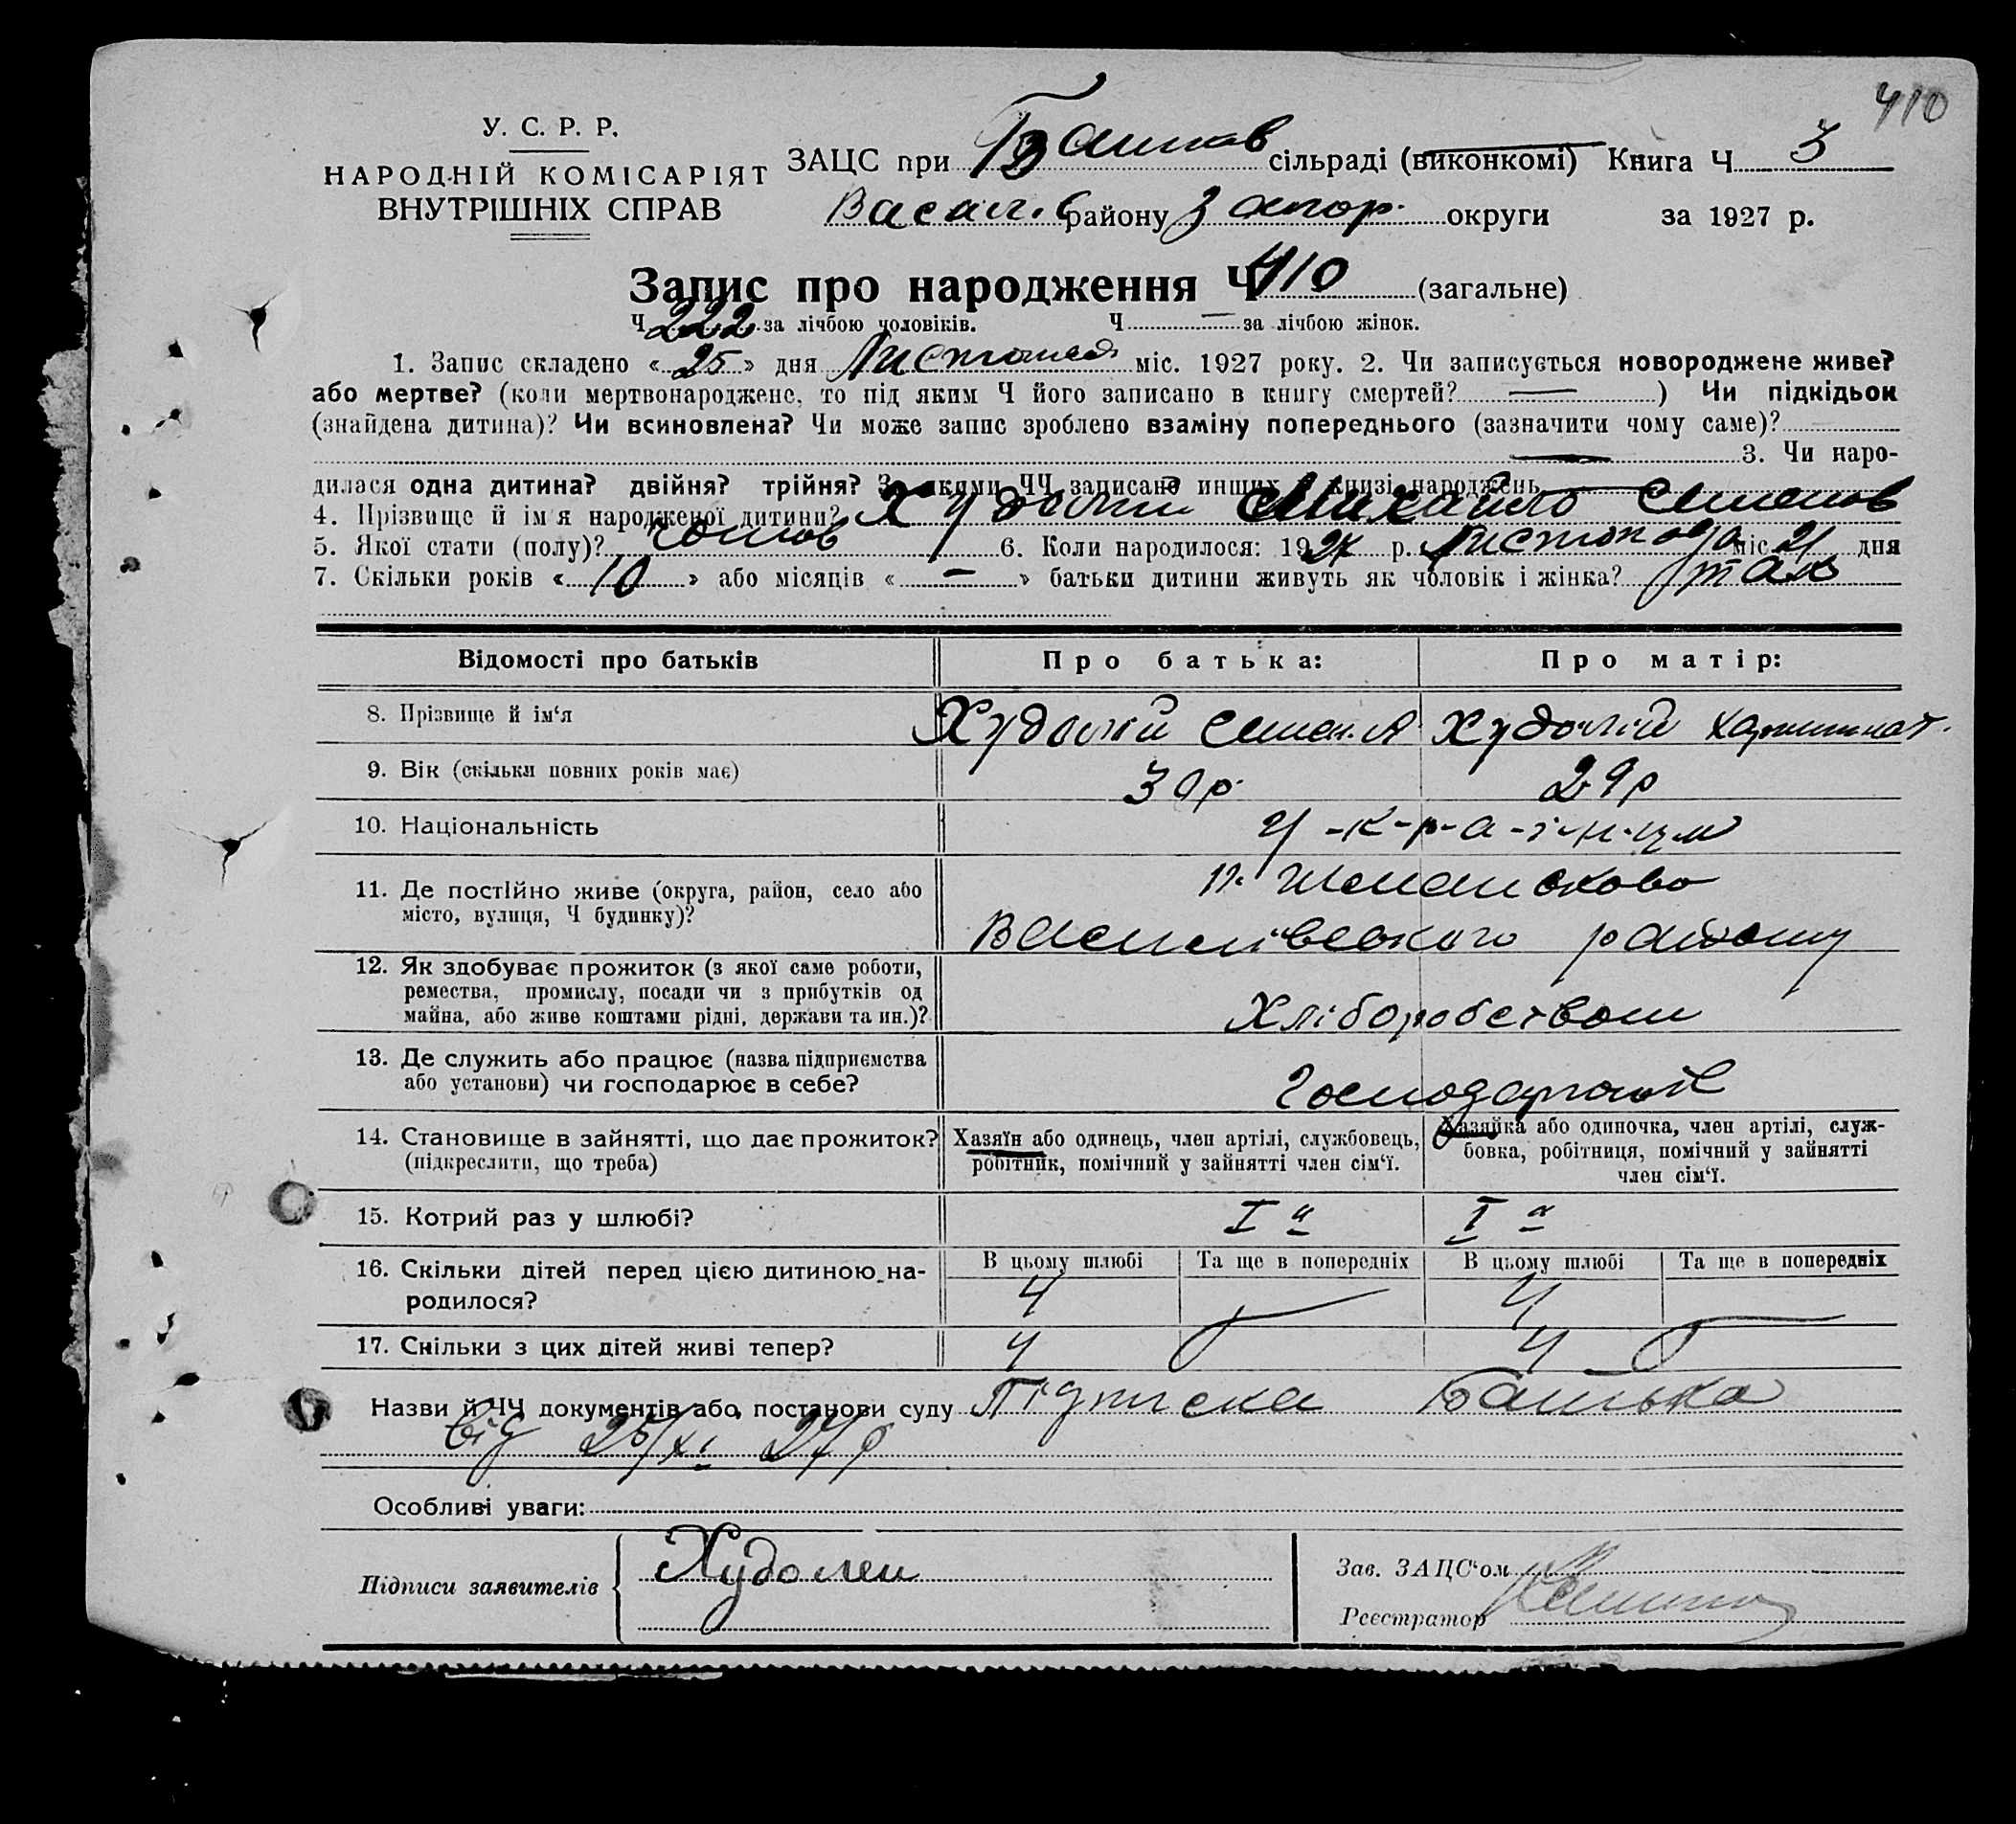 410
У. С. Р. Р.
НАРОДНІЙ КОМІСАРІЯТ
ВНУТРІШНІХ СПРАВ
ЗАЦС при сільраді (виконкомі) Книга Ч 3
Васил. району Запор. округи за 1927 р.
Запис про народження Ч 410 (загальне)
Ч 222 за лічбою чоловіків. Ч — за лічбою жінок.
1. Запис складено « 25 » дня Листопад міс. 1927 року. 2. Чи записується новороджене живе?
або мертве? (коли мертвонароджене, то під яким Ч його записано в книгу смертей? — ) Чи підкідьок
(знайдена дитина)? Чи всиновлена? Чи може запис зроблено взаміну попереднього (зазначити чому саме)?
— 3. Чи наро-
дилася одна дитина? двійня? трійня? З якими ЧЧ записано инших в книзі народжень
4. Прізвище й ім'я народженої дитини? Худолій Михайло Семенов
5. Якої стати (полу)? чолов 6. Коли народилося: 1927 р. Листопада міс. 21 дня
7. Скільки років « 10 » або місяців « — » батьки дитини живуть як чоловік і жінка? так
Відомості про батьків Про батька: Про матір:
8. Прізвище й ім'я Худолій Худолій
9. Вік (скільки повних років має) 30р. 29р
10. Національність У-к-р-а-ї-н-ци
11. Де постійно живе (округа, район, село або
місто, вулиця, Ч будинку)?
Василівського району
12. Як здобуває прожиток (з якої саме роботи,
ремества, промислу, посади чи з прибутків од
майна, або живе коштами рідні, держави та ин.)? Хліборобством
13. Де служить або працює (назва підприємства
або установи) чи господарює в себе?
14. Становище в зайнятті, що дає прожиток?
(підкреслити, що треба)
Хазяїн або одинець, член артілі, службовець,
робітник, помічний у зайнятті член сім'ї.
Хазяйка або одиночка, член артілі, служ-
бовка, робітниця, помічний у зайнятті
член сім'ї.
15. Котрий раз у шлюбі? I й I й
16. Скільки дітей перед цією дитиною на-
родилося?
В цьому шлюбі Та ще в попередніх В цьому шлюбі Та ще в попередніх
4 — 4 —
17. Скільки з цих дітей живі тепер? 4 — 4 —
Назви й ЧЧ документів або постанови суду Підписка Батька
від 25/XI 27р
Особливі уваги:
Підписи заявителів Худолей
Зав. ЗАЦС'ом
Реєстратор